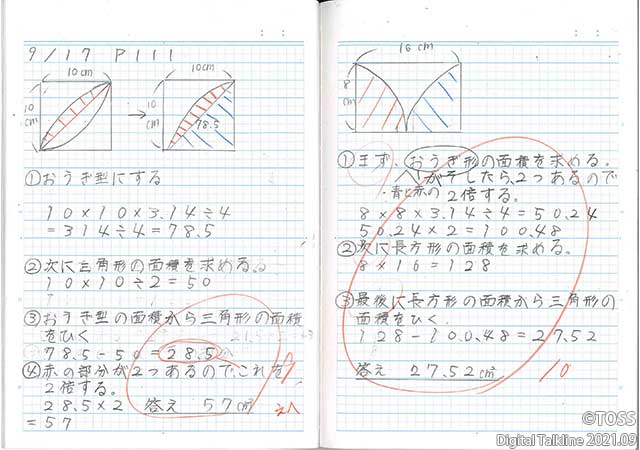 9/17 P111
10cm
10cm
10cm
10cm
78.5
①おうぎ型にする
10×10×3.14÷4
=314÷4=78.5
②次に三角形の面積を求める。
10×10÷2=50
③おうぎ型の面積から三角形の面積
をひく
78.5-50=28.5
④赤の部分が2つあるので、これを
2倍する。
28.5×2 答え 57cm²
=57
16cm
8cm
①まず、おうぎ形の面積を求める。
がそしたら、2つあるので
・青と赤の 2倍する。
8×8×3.14÷4=50.24
50.24×2=100.48
②次に長方形の面積を求める。
8×16=128
③最後に長方形の面積から三角形の
面積をひく
128-100.48=27.52
答え 27.52cm²
10
©TOSS
Digital Talkline 2021.09